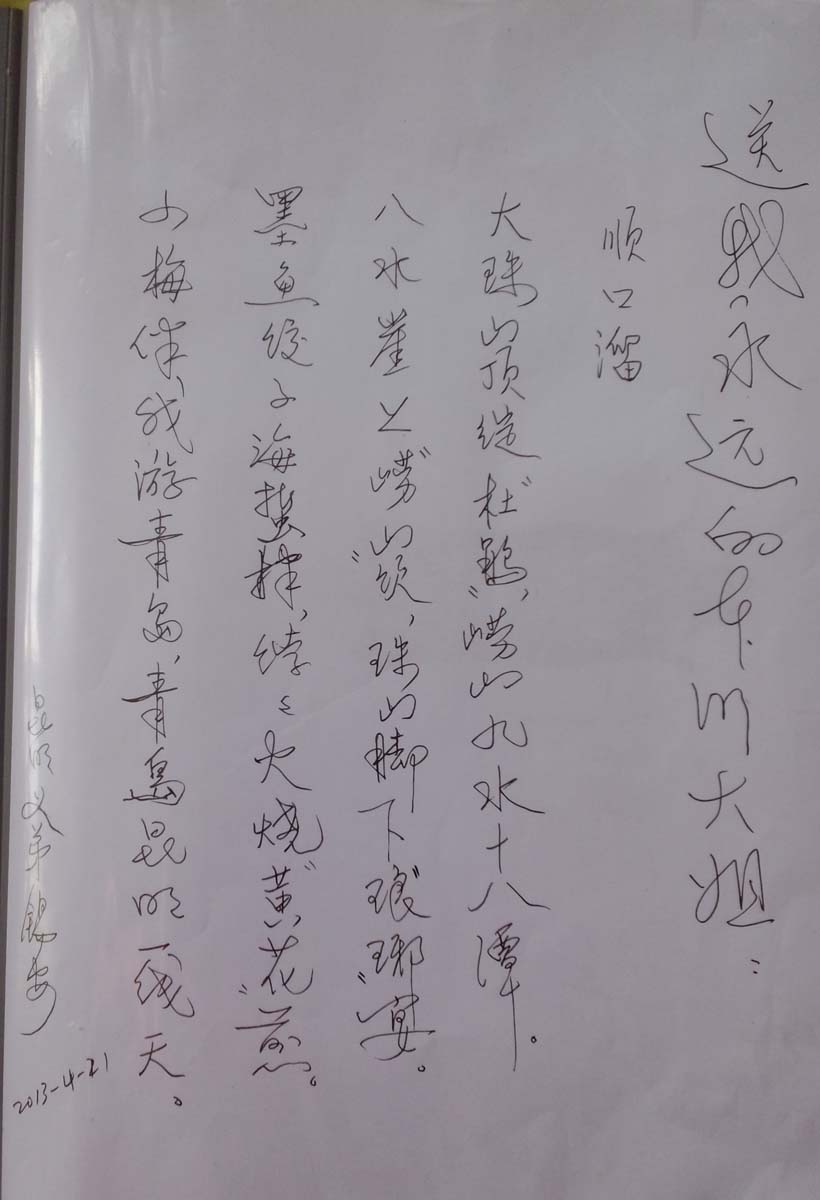 送我永远的川大姐：
顺口溜
大珠山顶绽“杜鹃”，崂山九水十八潭。
八水崖上“崂山颂”，珠山脚下“琅琊宴”。
墨鱼饺子海蜇拌，饽饽火烧“黄花”煎。
小梅伴我游青岛，青岛昆明一线天。
昆明义弟锡安
2013-4-21